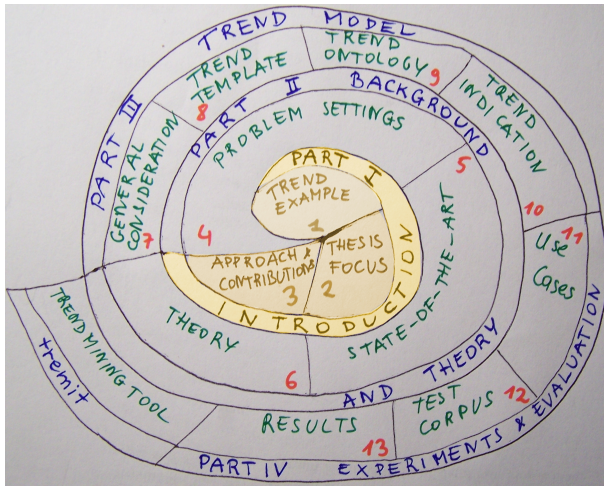 PART I
INTRODUCTION
TREND
EXAMPLE
1
THESIS
FOCUS
2
APPROACH &
CONTRIBUTIONS
3
PART II BACKGROUND
AND THEORY
PROBLEM SETTINGS
4
STATE-OF-THE-ART
5
THEORY
6
PART III TREND MODEL
GENERAL
CONSIDERATION
7
TREND
TEMPLATE
8
TREND
ONTOLOGY
9
TREND
INDICATION
10
PART IV EXPERIMENTS & EVALUATION
USE
CASES
11
TEST
CORPUS
12
RESULTS
13
TRENDMINING TOOL
tremit